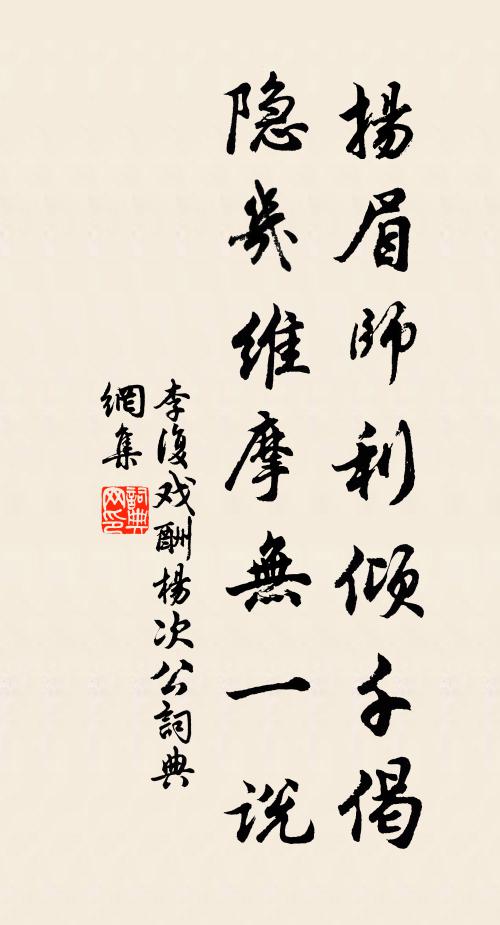 揚眉師利傾千偈
隐幾維摩無一说
李復戏酬楊次公詞典
網集
詞典網印